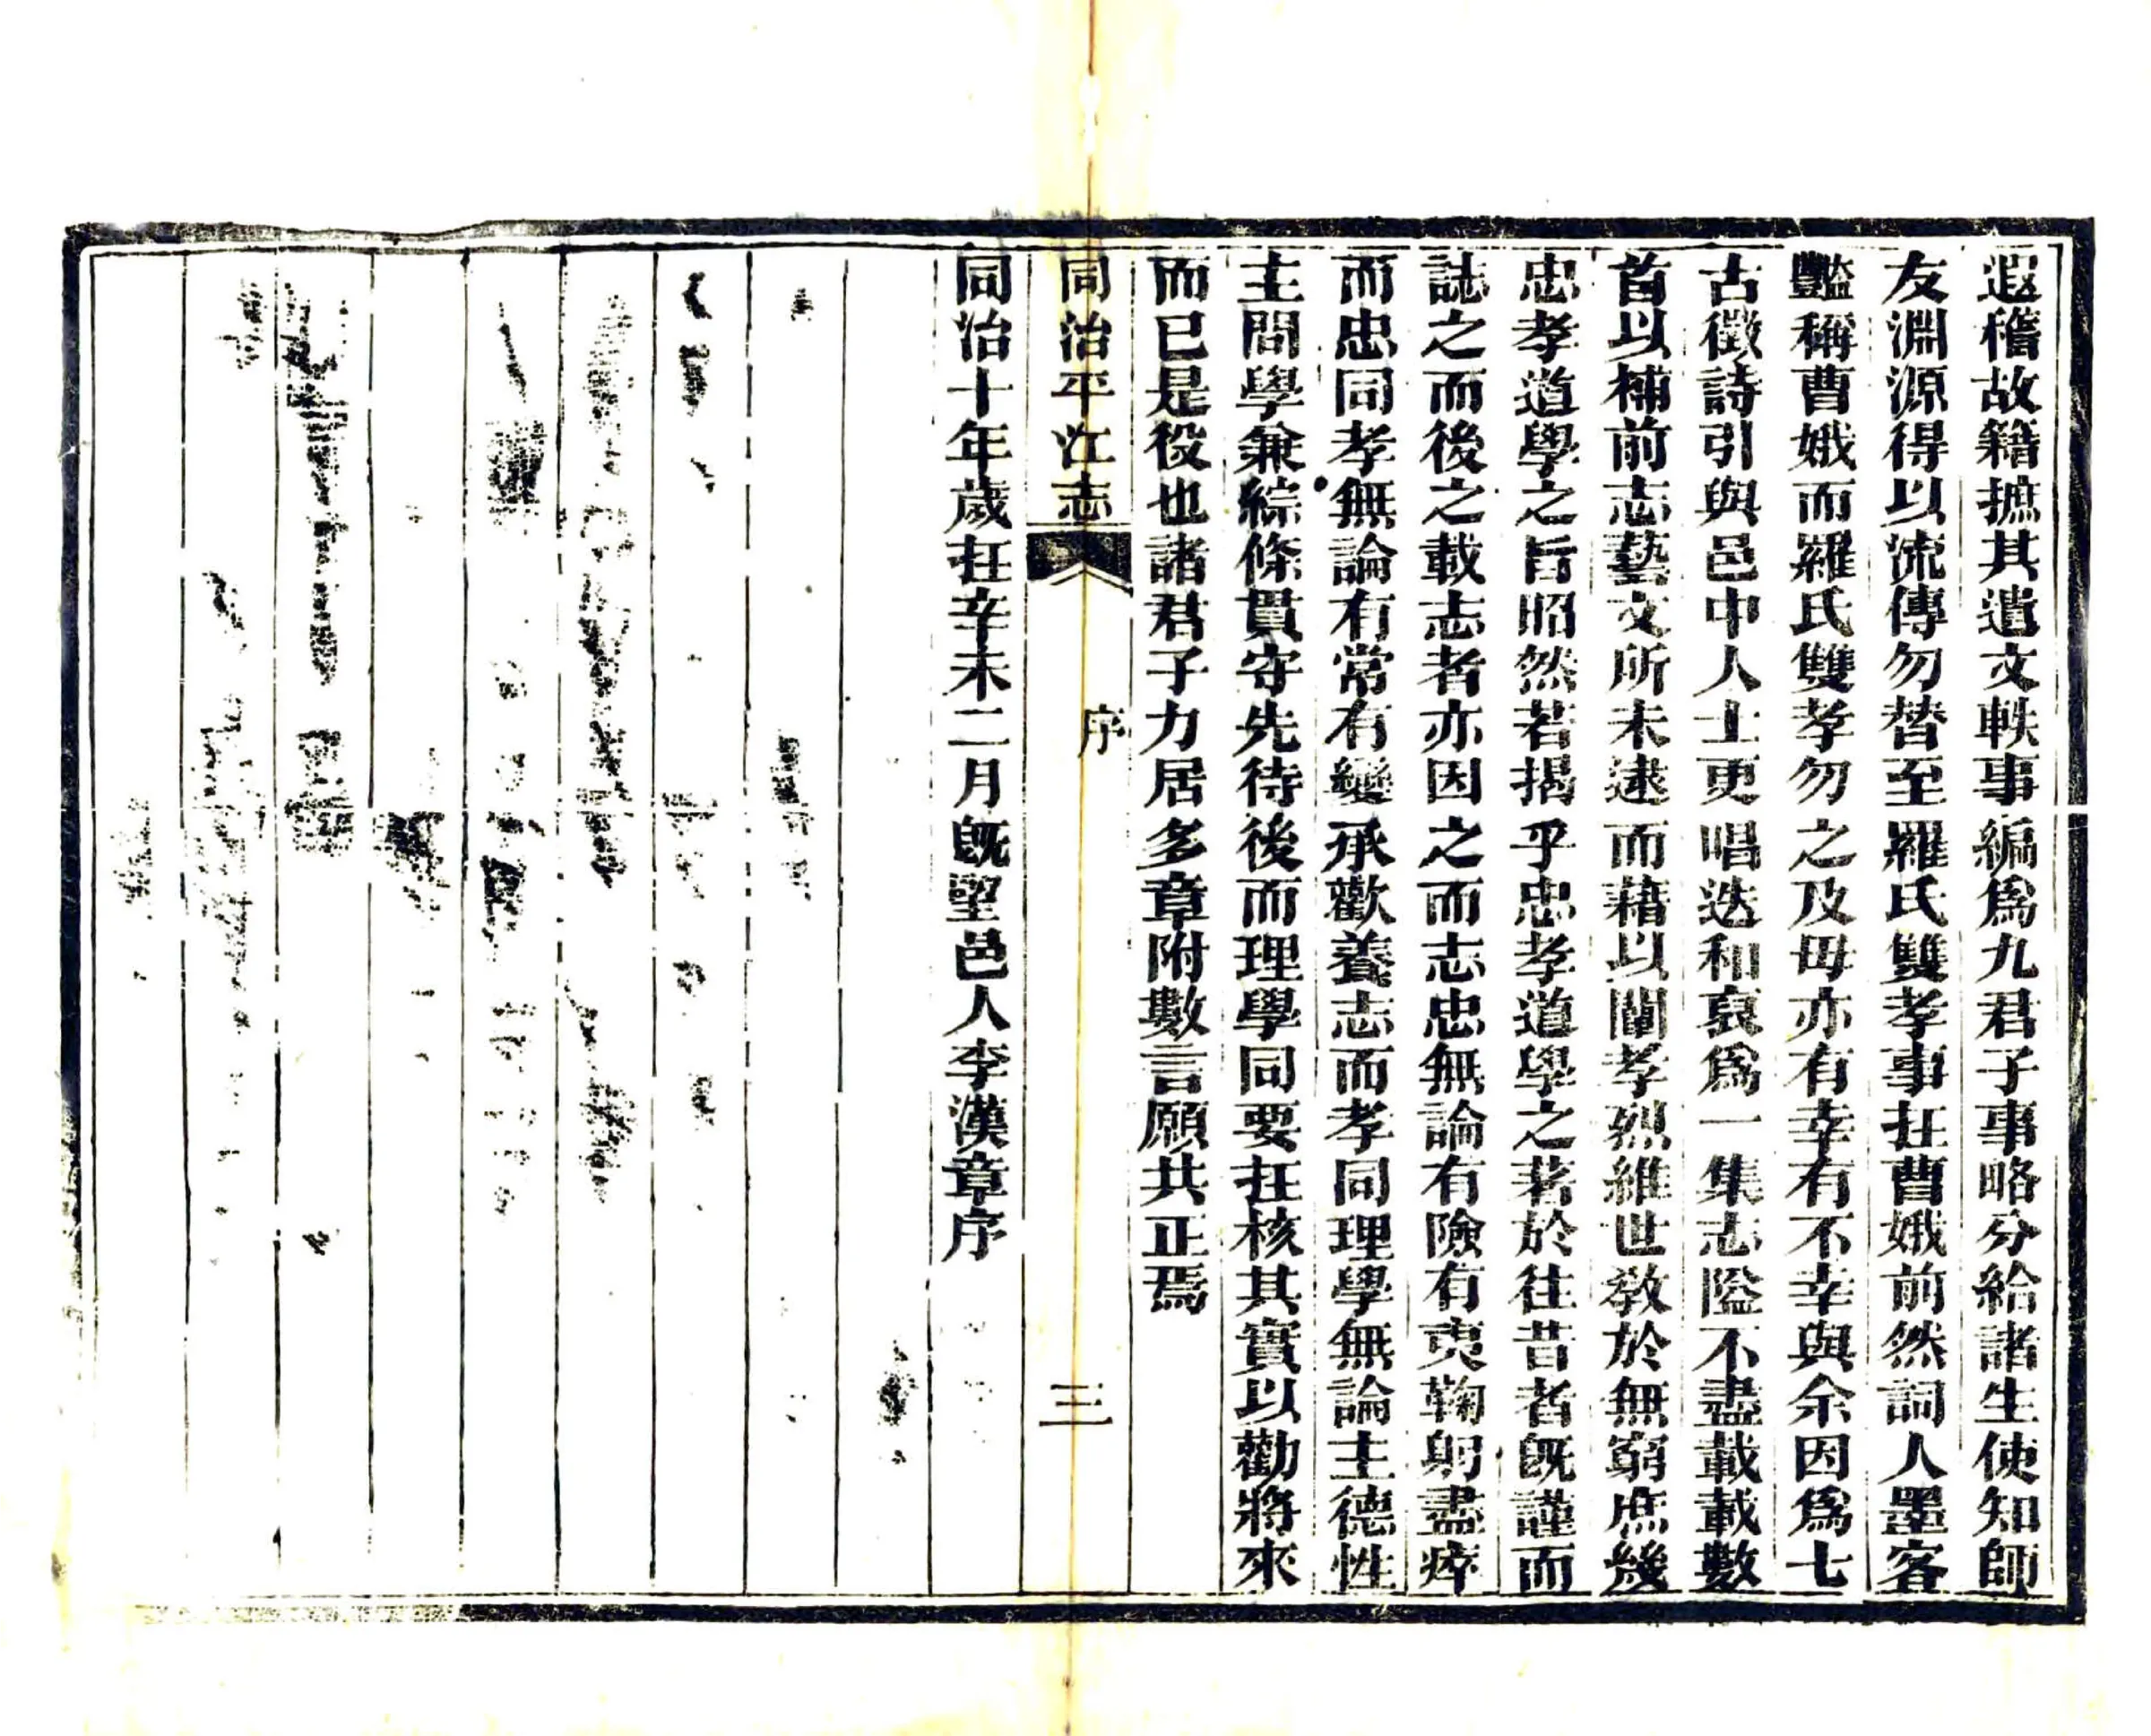 遐稽故籍摭其遺文軼事編爲九君子事略分給諸生使知師
友淵源得以流傳勿替至羅氏雙孝事在曹娥前然詞人墨客
豔稱曹娥而羅氏雙孝勿之及毋亦有幸有不幸與余因爲七
古徵詩引與邑中人士更唱迭和裒爲一集志隘不盡載載數
首以補前志藝文所未逮而藉以闡孝烈維世敎於無窮庶幾
忠孝道學之旨昭然若揭乎忠孝道學之著於往昔者旣謹而
誌之而後之載志者亦因之而志忠無論有險有夷鞠躬盡瘁
而忠同孝無論有常有變承歡養志而孝同理學無論主德性
主問學兼綜條貫守先待後而理學同要在核其實以勸將來
而已是役也諸君子力居多章附數言願共正焉
同治平江志
序
三
同治十年歲在辛未二月旣望邑人李漢章序